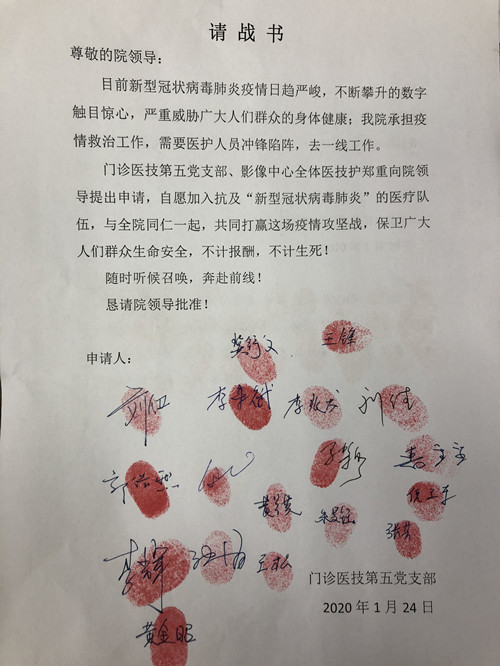 请战书
尊敬的院领导：
目前新型冠状病毒肺炎疫情日趋严峻，不断攀升的数字
触目惊心，严重威胁广大人们群众的身体健康；我院承担疫
情救治工作，需要医护人员冲锋陷阵，去一线工作。
门诊医技第五党支部、影像中心全体医技护郑重向院领
导提出申请，自愿加入抗及“新型冠状病毒肺炎”的医疗队
伍，与全院同仁一起，共同打赢这场疫情攻坚战，保卫广大
人们群众生命安全，不计报酬，不计生死！
随时听候召唤，奔赴前线！
恳请院领导批准！
王锋
申请人：
李辉 王松
门诊医技第五党支部
2020 年 1 月 24 日
黄金昭